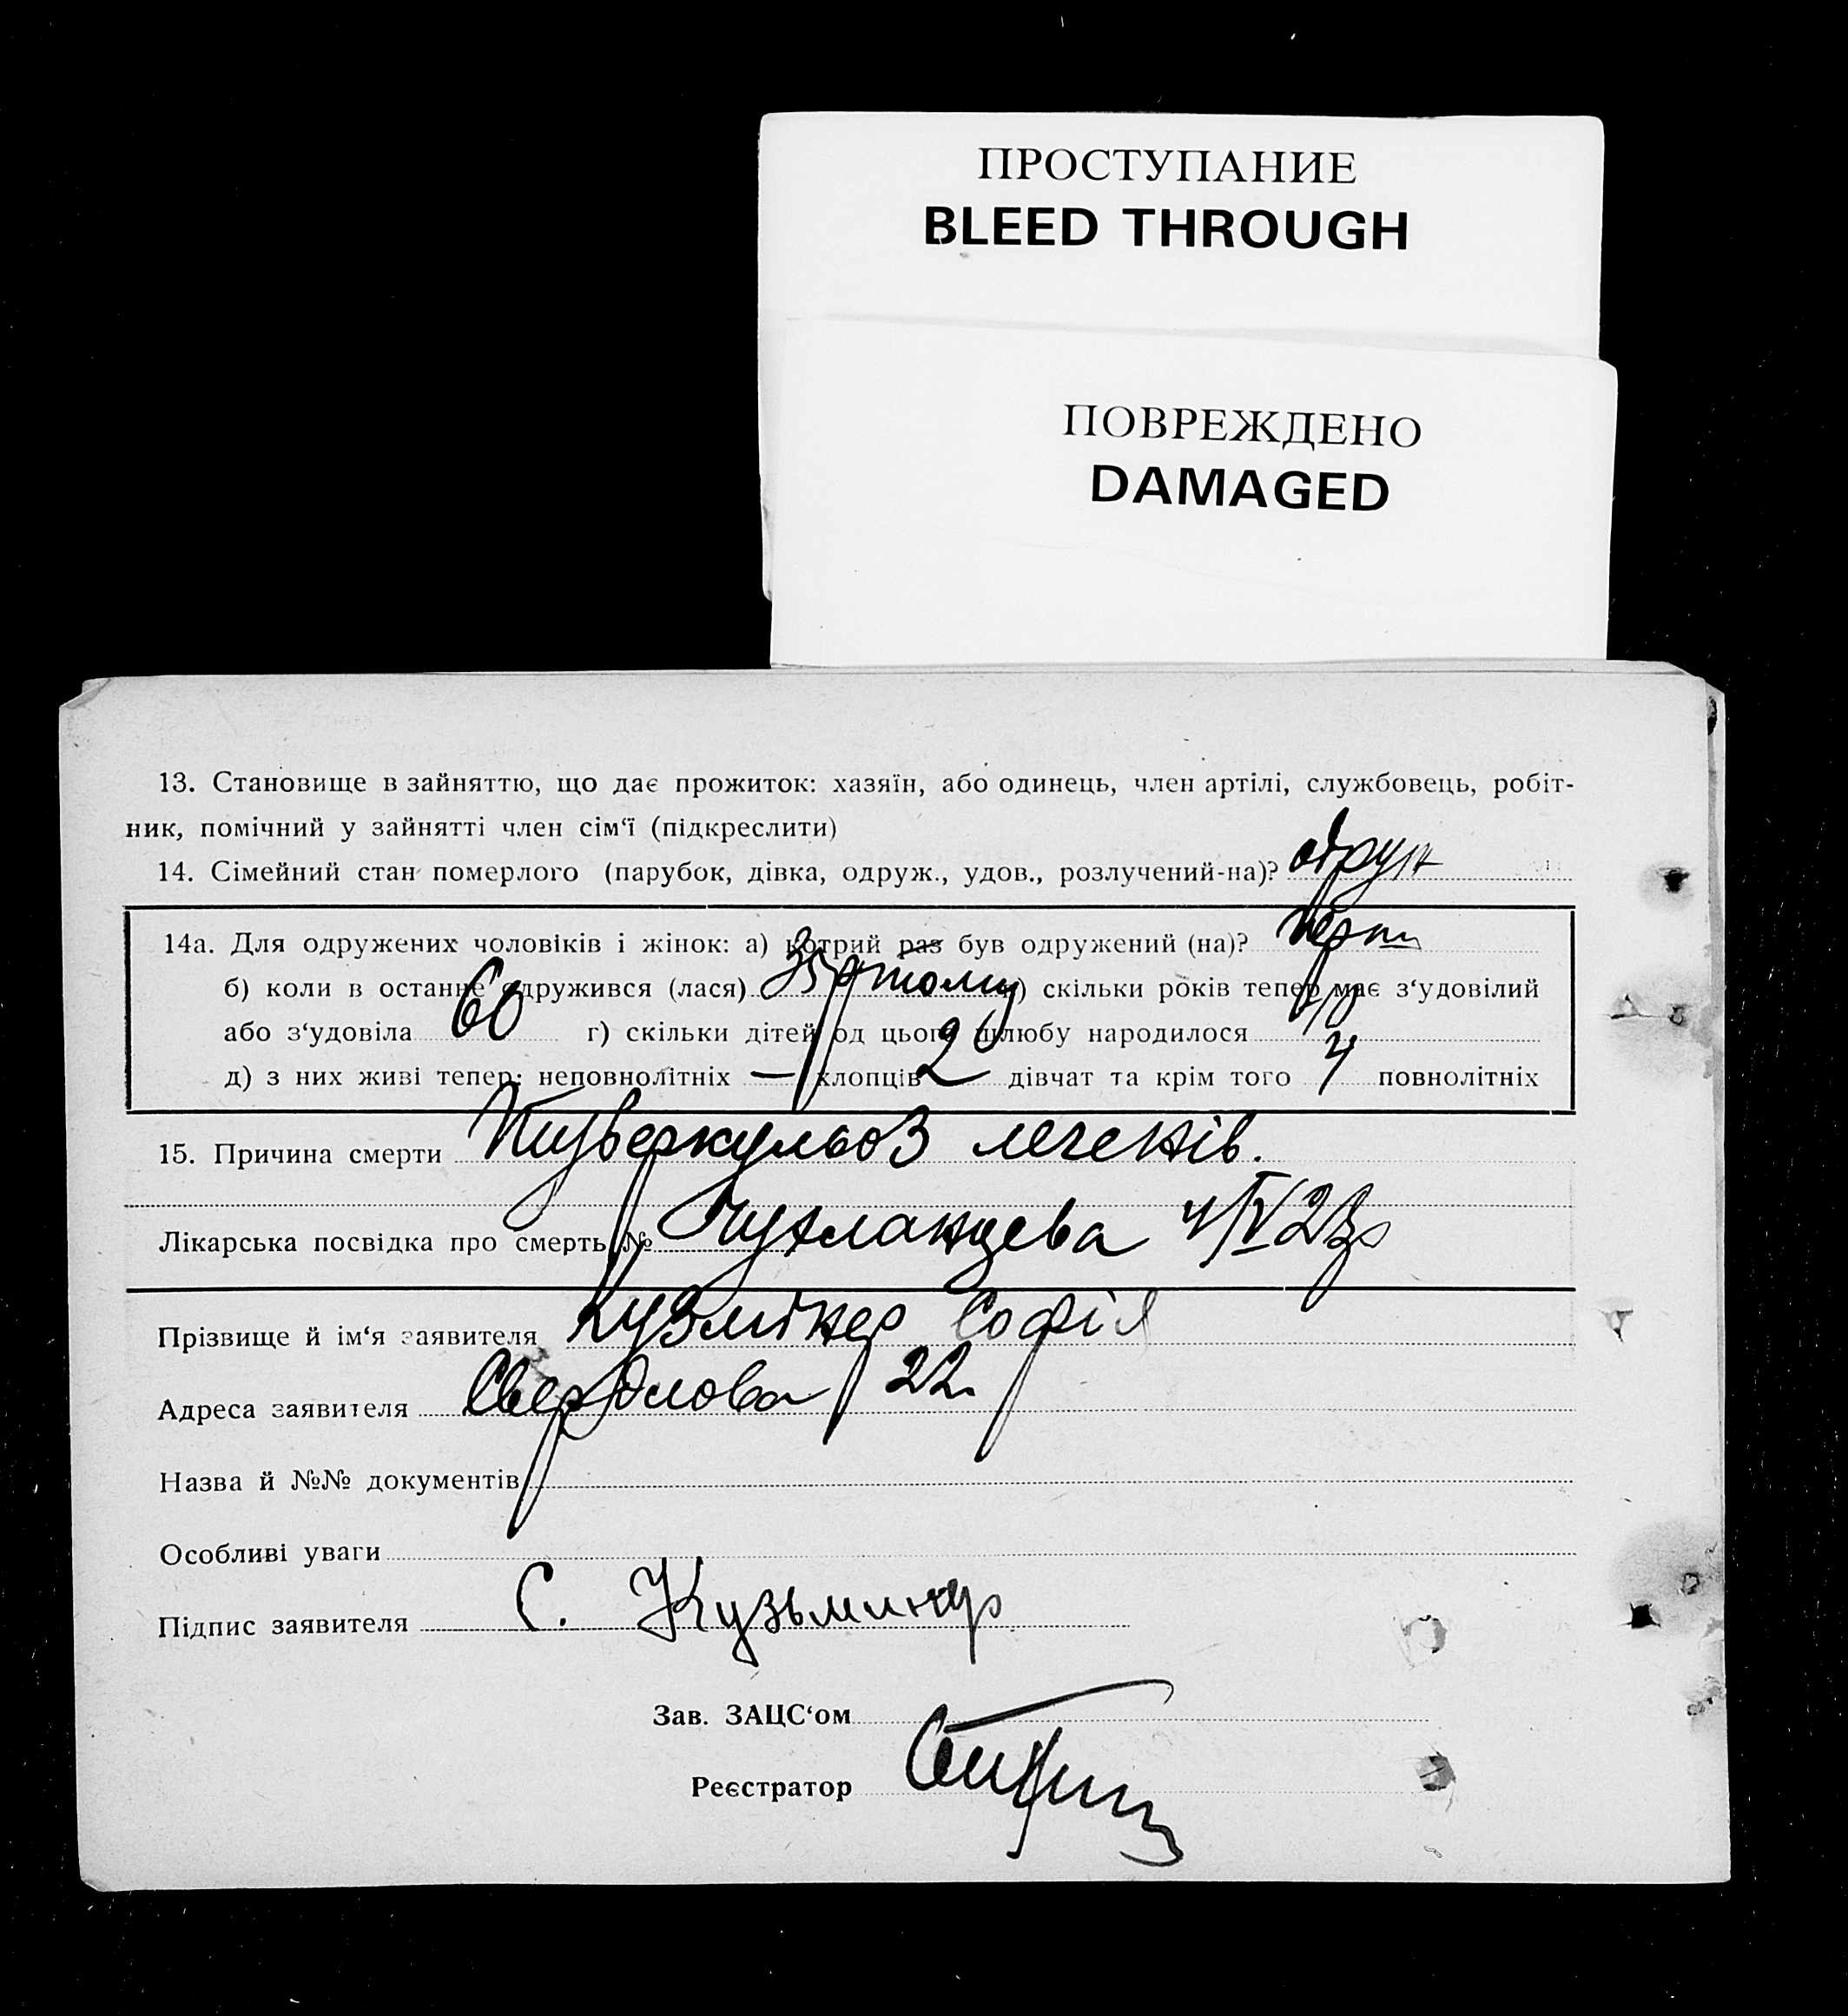 ПРОСТУПАНИЕ
BLEED THROUGH
ПОВРЕЖДЕНО
DAMAGED
13. Становище в зайняттю, що дає прожиток: хазяїн, або одинець, член артілі, службовець, робіт-
ник, помічний у зайнятті член сім‘ї (підкреслити)
14. Сімейний стан померлого (парубок, дівка, одруж., удов., розлучений-на)? одруж
14а. Для одружених чоловіків і жінок: а) котрий раз був одружений (на)? перш
б) коли в останнє одружився (лася) скільки років тепер має з‘удовілий
або з‘удовіла 60 г) скільки дітей од цього шлюбу народилося
д) з них живі тепер: неповнолітніх — хлопців 2 дівчат та крім того 4 повнолітніх
15. Причина смерти Туберкульоз легенів.
Лікарська посвідка про смерть №
Прізвище й ім‘я заявителя Кузмінер Софія
Адреса заявителя Свердлова 22.
Назва й №№ документів
Особливі уваги
Підпис заявителя С. Кузьминер
Зав. ЗАЦС‘ом
Реєстратор